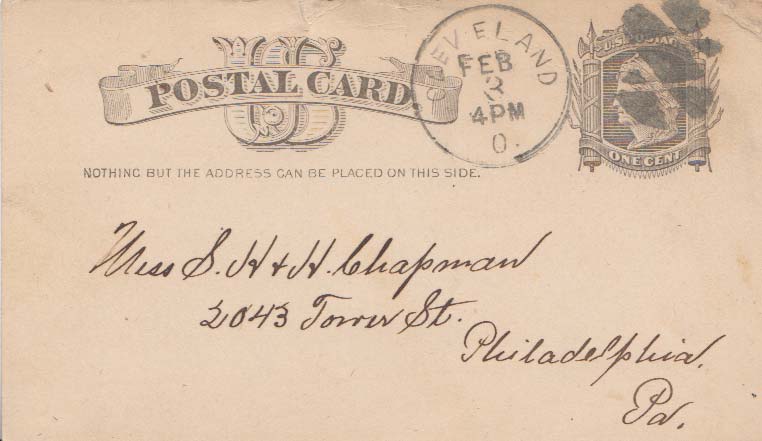 US
POSTAL CARD.
CLEVELAND
FEB
3
4PM
O.
U.S. POSTAGE
ONE CENT
NOTHING BUT THE ADDRESS CAN BE PLACED ON THIS SIDE.
Miss S. H & H. Chapman
2043 Tower St.
Philadelphia.
Pa.